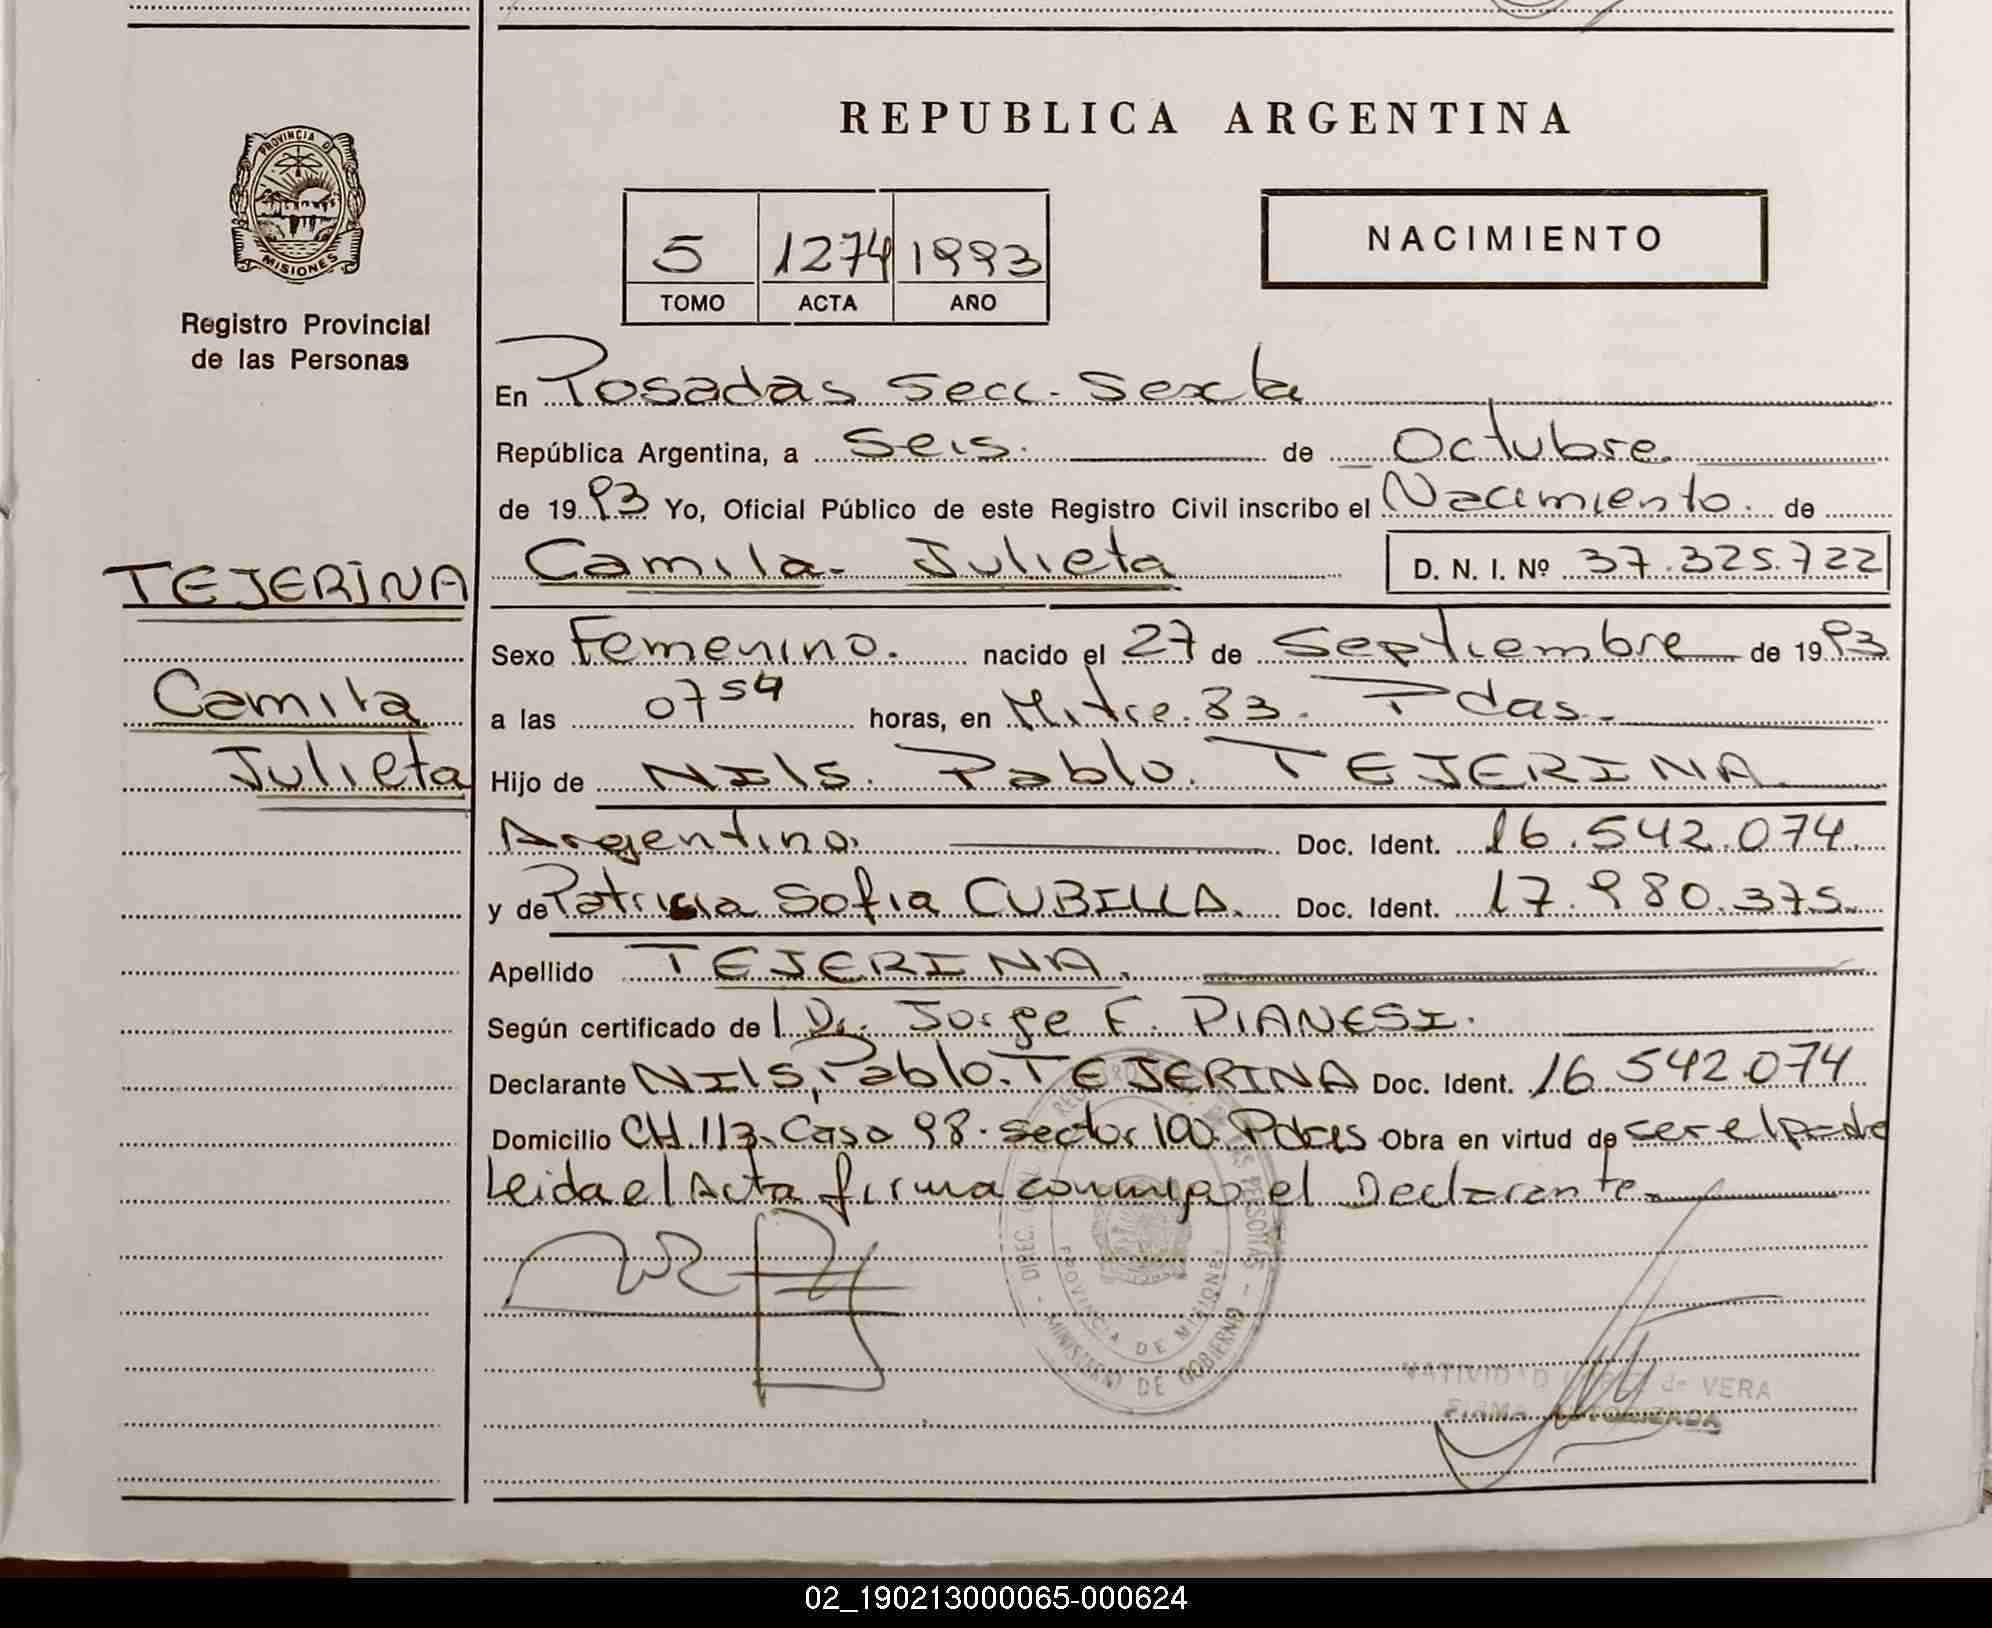 REPUBLICA ARGENTINA
PROVINCIA DE
MISIONES
Registro Provincial
de las Personas
NACIMIENTO
5 1274 1993
TOMO ACTA AÑO
En Posadas Secc. Sexta
República Argentina, a Seis. de Octubre.
de 1993 Yo, Oficial Público de este Registro Civil inscribo el Nacimiento. de
TEJERINA
Camila
Julieta
Camila Julieta D. N. I. Nº 37.325.722
Sexo Femenino. nacido el 27 de Septiembre de 1993
a las 07 54 horas, en Mitre. 83. Pdas.
Hijo de Nils. Pablo. TEJERINA
Argentino. Doc. Ident. 16.542.074.
y de Patricia Sofia CUBILLA. Doc. Ident. 17.980.375.
Apellido TEJERINA.
Según certificado de Dr. Jorge F. PIANESI.
Declarante Nils Pablo. TEJERINA Doc. Ident. 16.542.074
Domicilio CH.113. Casa 98. Sector 100. Pdas Obra en virtud de ser el padre
Leida el Acta firma conmigo el Declarante.
PROVINCIA DE MISIONES
MINISTERIO DE GOBIERNO
NATIVIDAD de VERA
FIRMA AUTORIZADA
02_190213000065-000624